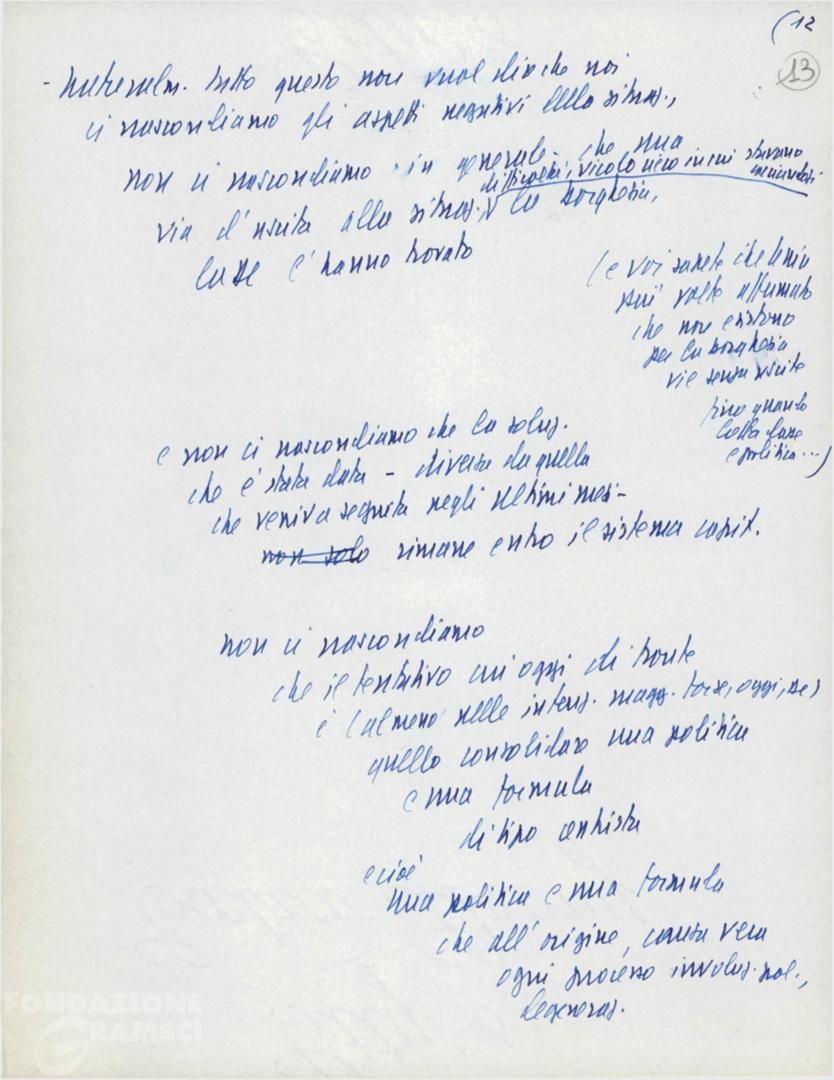 (12
13
- Naturalm. tutto questo non vuol dire che noi
ci nascondiamo gli aspetti negativi della situaz.,
non ci nascondiamo in generale - che una
difficoltà, vicolo cieco in cui stavano
via d'uscita alla situaz., la borghesia,
la DC l'hanno trovato
(e voi sapete che Lenin
più volte affermato
che non esistono
per la borghesia
vie senza uscita
fino quando
lotta classe
e politica...)
e non ci nascondiamo che la soluz.
che è stata data - diversa da quella
che veniva seguita negli ultimi mesi -
non solo rimane entro il sistema capit.
non ci nascondiamo
che il tentativo cui oggi di fronte
è (almeno nelle intenz. magg. forze, oggi, DC)
quello consolidare una politica
e una formula
di tipo centrista
e cioè
una politica e una formula
che all'origine, causa vera
ogni processo involuz. pol.,
degeneraz.
FONDAZIONE
GRAMSCI